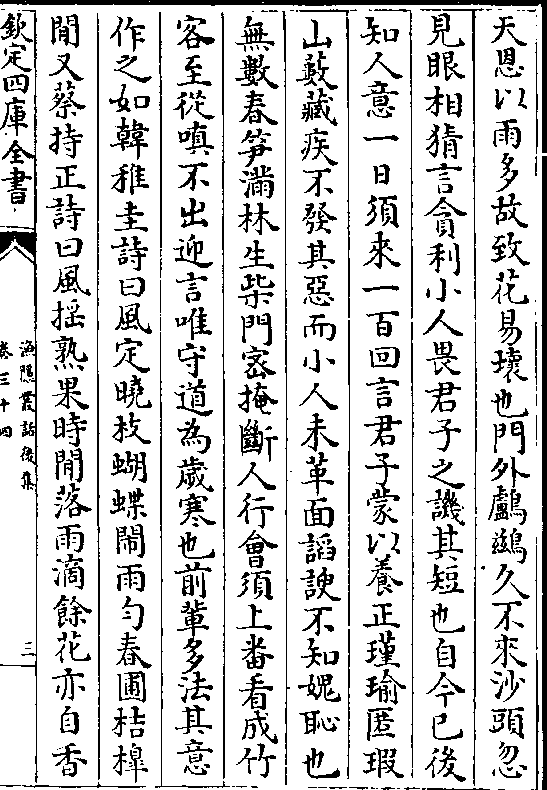 天恩以雨多故致花易壞也門外鸕鷀久不來沙頭忽
見眼相猜言貪利小人畏君子之譏其短也自今已後
知人意一日須來一百回言君子蒙以養正瑾瑜匿瑕
山藪藏疾不發其惡而小人未革面諂諛不知媿恥也
無數春笋滿林生柴門宻掩斷人行會須上畨看成竹
客至從嗔不出迎言唯守道為歲寒也前軰多法其意
作之如韓稚圭詩曰風定曉枝蝴蝶鬧雨勻春圃桔橰
閒又蔡持正詩曰風揺熟果時聞落雨滴餘花亦自香
欽定四庫全書
漁隱叢話後集
卷三十四
三